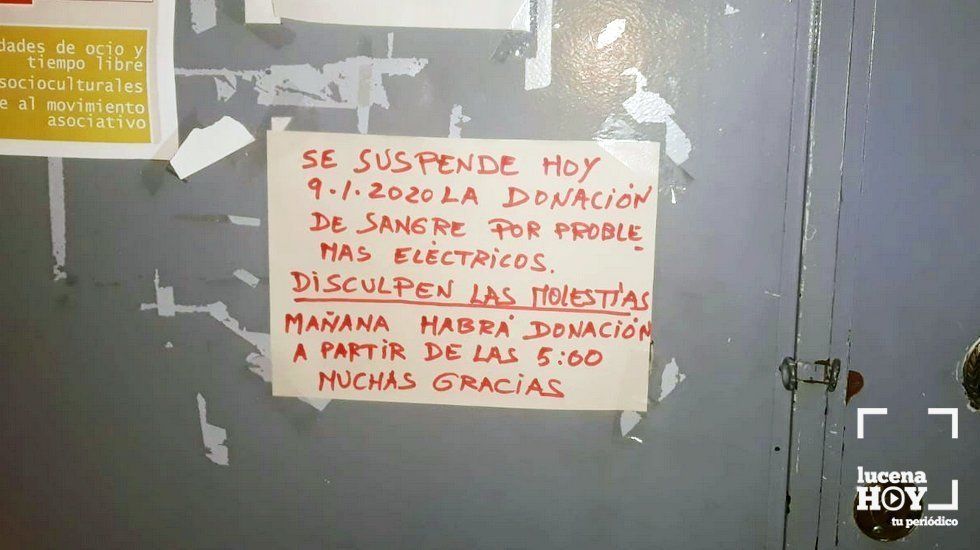 dades de ocio y
tiempo libre
socioculturales
e al movimiento
asociativo
SE SUSPENDE HOY
9.1.2020 LA DONACIÓN
DE SANGRE POR PROBLE_
MAS ELÉCTRICOS.
DISCULPEN LAS MOLESTIAS
MAÑANA HABRÁ DONACIÓN
A PARTIR DE LAS 5:00
MUCHAS GRACIAS
lucena
HOY
tu periódico